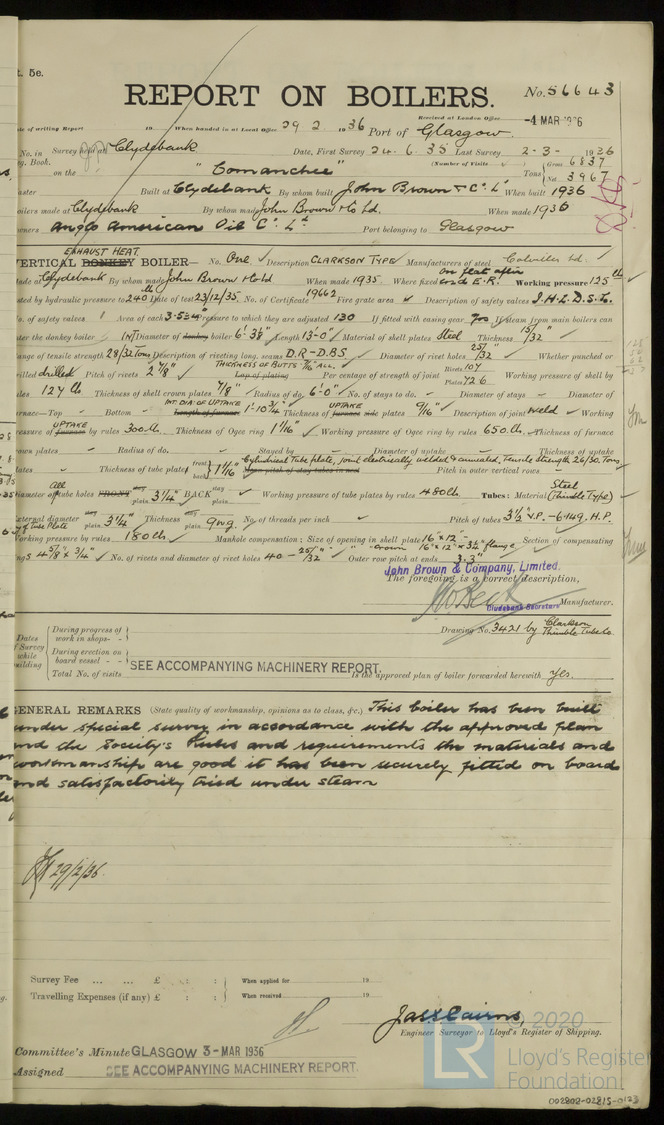 t. 5c.
REPORT ON BOILERS.
No. 56643
Received at London Office -4 MAR 1936
ate of writing Report 19 When handed in at Local Office 29 2 1936 Port of Glasgow.
No. in Survey held at Clydebank Date, First Survey 24-6-35 Last Survey 2-3-1936
g. Book. (Number of Visits )
on the "Comanchee" Tons { Gross 6837
Net 3967
aster Built at Clydebank By whom built John Brown & Co. Ld. When built 1936
oilers made at Clydebank By whom made John Brown & Co Ld. When made 1936
wners Anglo American Oil Co. Ld. Port belonging to Glasgow
EXHAUST HEAT.
VERTICAL DONKEY BOILER— No. One Description CLARKSON TYPE Manufacturers of steel Colvilles Ld.
ade at Clydebank By whom made John Brown & Co Ld When made 1935. Where fixed on flat after end E.R. Working pressure 125 lb
sted by hydraulic pressure to 240 lb Date of test 23/12/35. No. of Certificate 19662 Fire grate area Description of safety valves
No. of safety valves 1 Area of each Pressure to which they are adjusted 130 If fitted with easing gear Yes If steam from main boilers can
ter the donkey boiler Diameter of donkey boiler 6'-3⅜" Length 13'-0" Material of shell plates Steel Thickness 15/32"
ange of tensile strength 28/32 Tons Description of riveting long. seams D.R-D.BS Diameter of rivet holes 25/32" Whether punched or
THICKNESS OF BUTTS 7/16" ALL.
rilled drilled Pitch of rivets 2⅛" Lap of plating Per centage of strength of joint Rivets 107
Plates 72.6 Working pressure of shell by
ules 127 lb Thickness of shell crown plates 7/8" Radius of do. 6'-0" No. of stays to do. Diameter of stays Diameter of
INT. DIA. OF UPTAKE UPTAKE
urnace—Top Bottom Length of furnace 1'-10¾" Thickness of furnace plates 9/16" Description of joint Weld Working
UPTAKE
essure of furnace by rules 300 lb. Thickness of Ogee ring 1 1/16" Working pressure of Ogee ring by rules 650 lb. Thickness of furnace
own plates Radius of do. Stayed by Diameter of uptake Thickness of uptake
Cylindrical Tube plate, joint electrically welded & annealed, Tensile strength 26/30 Tons
lates Thickness of tube plates { front
back } 1 1/16" Mean pitch of stay tubes in nest Pitch in outer vertical rows
All Steel
Diameter of tube holes FRONT plain 3¼" BACK stay
plain Working pressure of tube plates by rules 480 lb Tubes: Material (Thimble Type)
xternal diameter plain 3¼" Thickness plain 9wg. No. of threads per inch Pitch of tubes 3½" V.P. - 6·149. H.P.
of Tube Plate
Working pressure by rules 180 lb Manhole compensation: Size of opening in shell plate 16" x 12" Section of compensating
" " crown 16" x 12" x 3¼" flange
ing 4⅝" x ¾" No. of rivets and diameter of rivet holes 40 - 25/32" Outer row pitch at ends 3.3"
John Brown & Company, Limited.
The foregoing is a correct description,
Clydebank Secretary Manufacturer.
Drawing No. 3421 by Clarkson
Thimble Tube Co.
Dates
of Survey
while
building
During progress of
work in shops- -
During erection on
board vessel - -
Total No. of visits
SEE ACCOMPANYING MACHINERY REPORT.
Is the approved plan of boiler forwarded herewith Yes.
GENERAL REMARKS (State quality of workmanship, opinions as to class, &c.) This boiler has been built
under special survey in accordance with the approved plan
and the Society's Rules and requirements the materials and
workmanship are good it has been securely fitted on board
and satisfactorily tried under steam
29/2/36.
Survey Fee ... ... £ : : When applied for 19
Travelling Expenses (if any) £ : : When received 19
Jas Cairns,
Engineer Surveyor to Lloyd's Register of Shipping.
Committee's Minute GLASGOW 3-MAR 1936
Assigned SEE ACCOMPANYING MACHINERY REPORT.
© 2020
LR Lloyd's Register
Foundation
002802-02815-0123